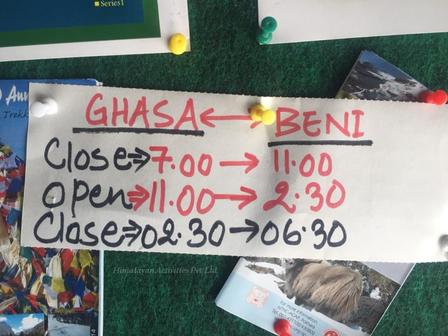 Series1
GHASA ↔ BENI
Close⇒7.00 → 11.00
open⇒11.00 → 2.30
Close⇒02.30 → 06.30
Himalayan Activities Pvt. Ltd.